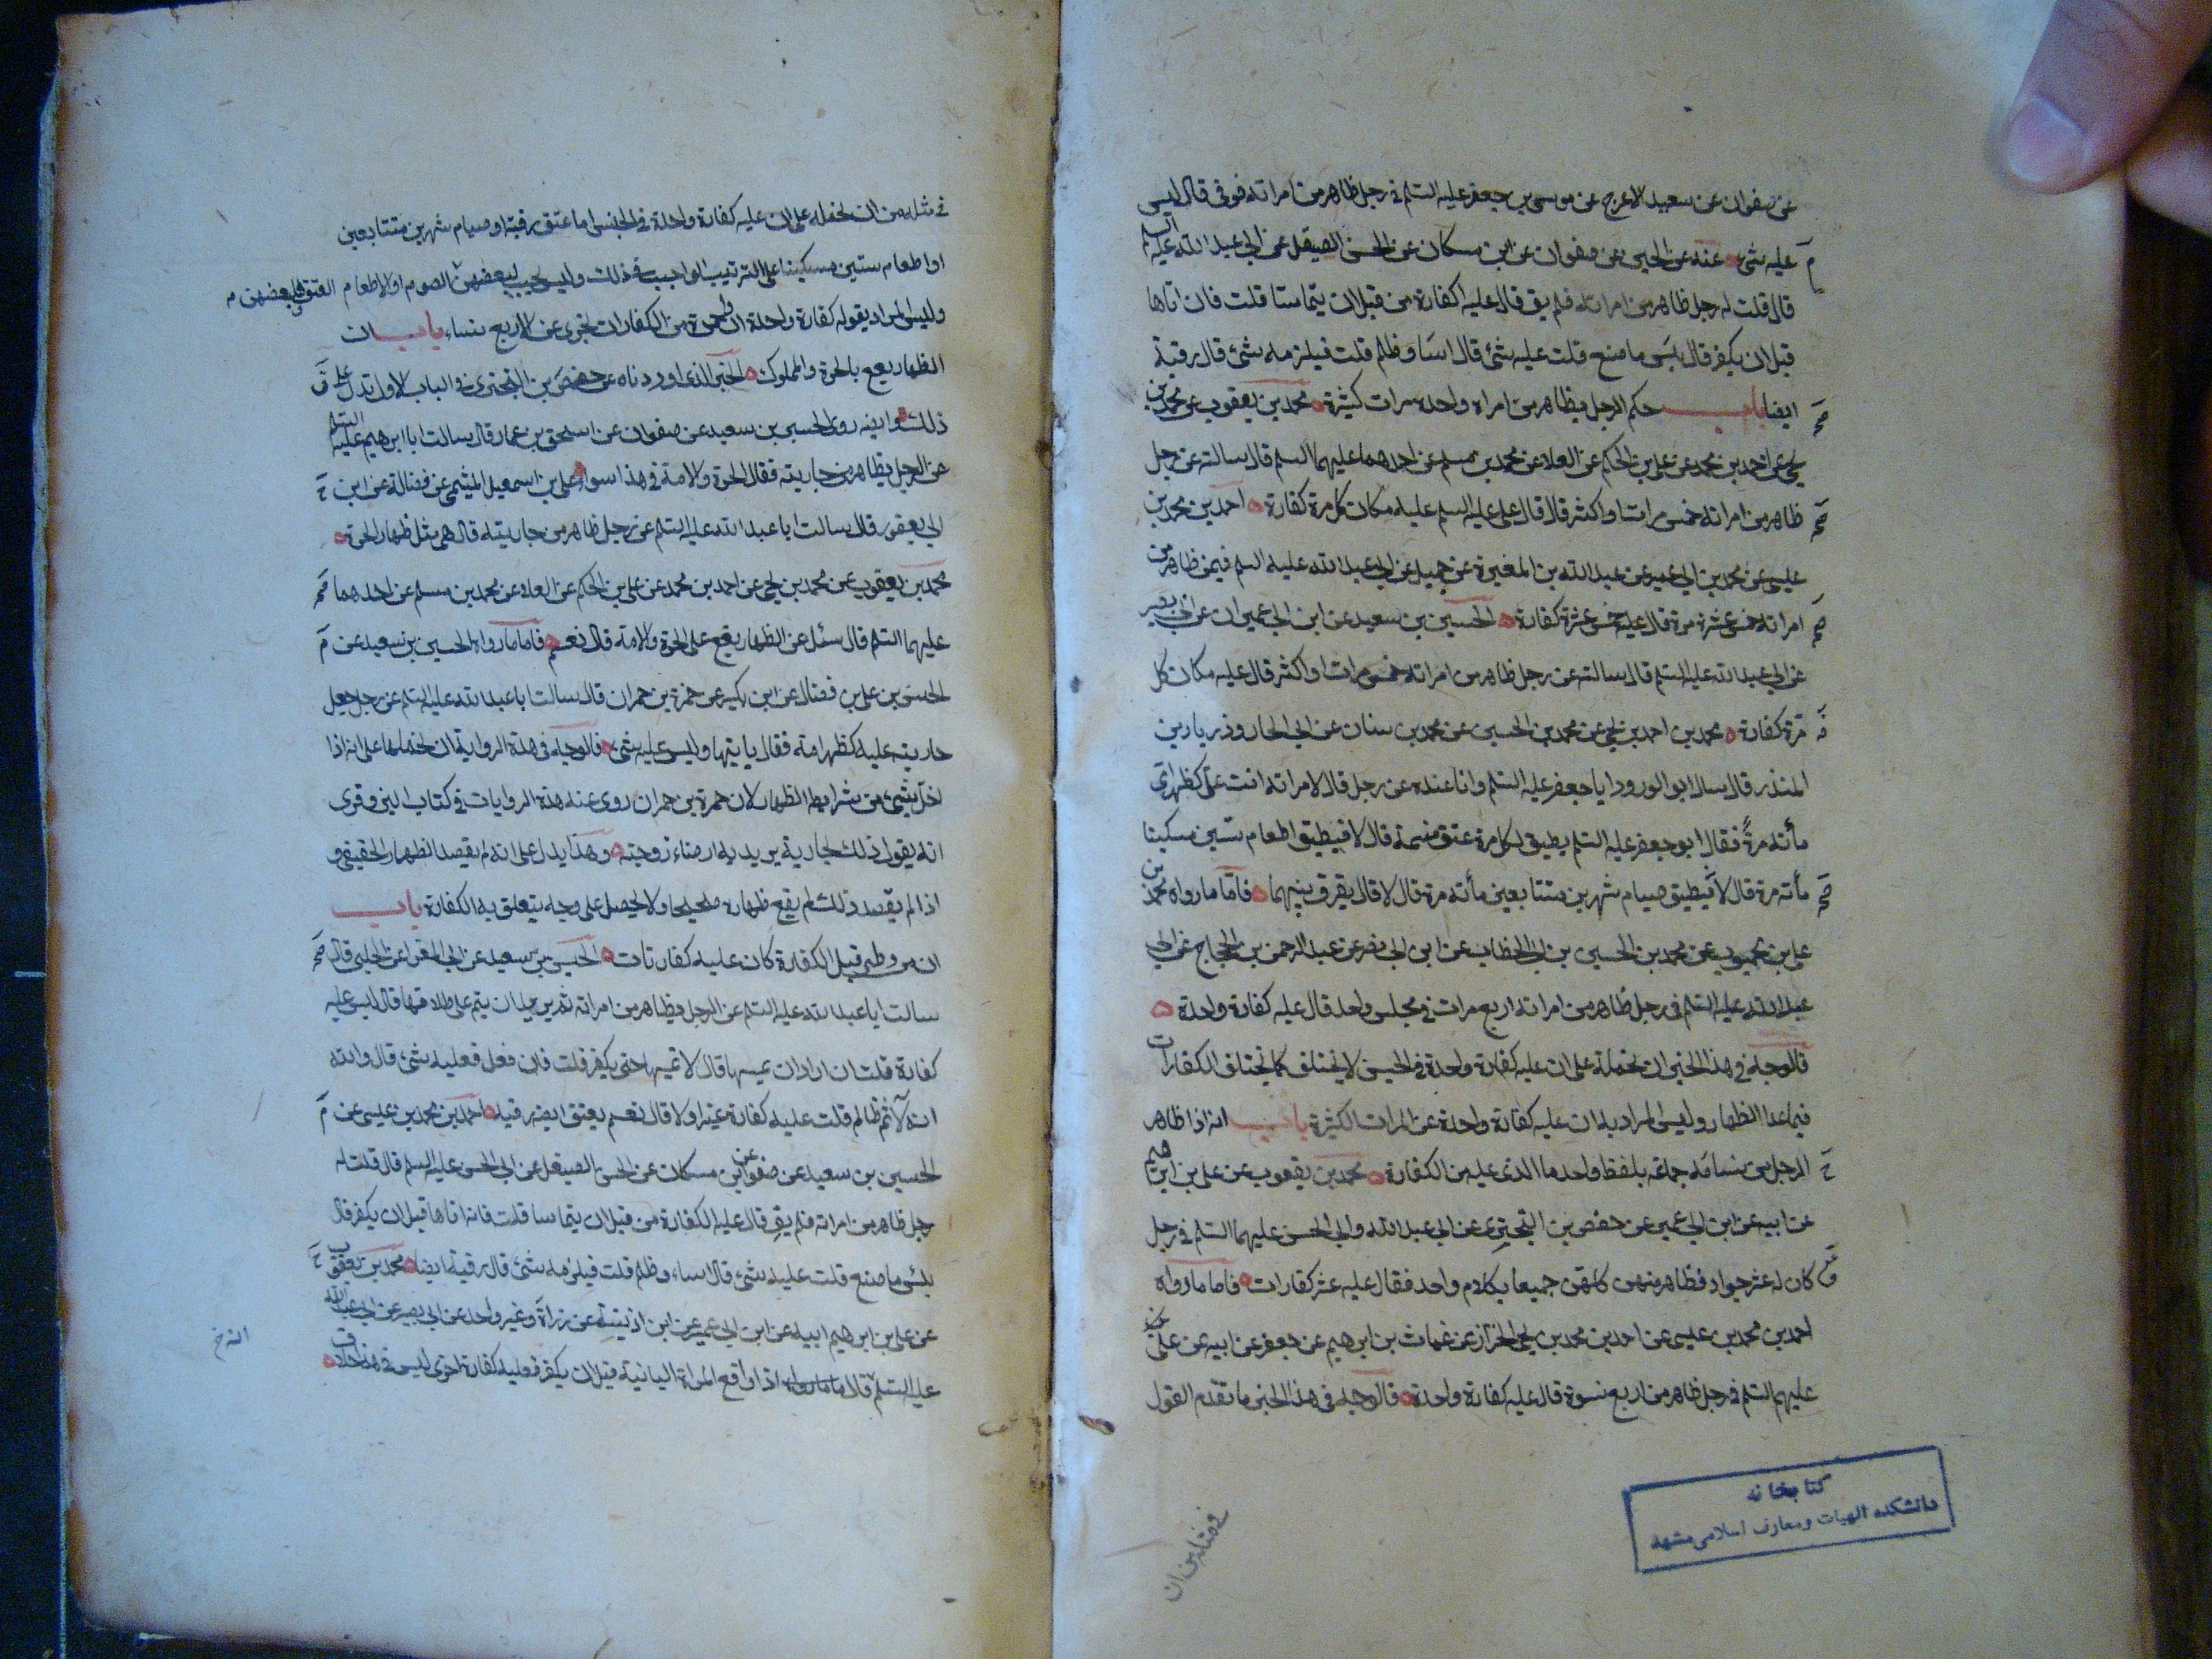 عن صفوان عن سعيد الاعرج عن موسى بن جعفر عليه السلم في رجل ظاهر من امراته فوفى قال ليس
عليه شئ عنه عن الحسين عن صفوان عن ابن مسكان عن الحسن الصيقل عن ابي عبد الله عليه السلم
قال قلت له رجل ظاهر من امراته فلم يف قال عليه الكفارة من قبل ان يتماسا قلت فان اتاها
قبل ان يكفر قال بئس ما صنع قلت عليه شئ قال اساء وظلم قلت فيلزمه شئ قال رقبة
ايضا باب حكم الرجل يظاهر من امراه واحدة مرات كثيرة محمد بن يعقوب عن محمد بن
يحيى عن احمد بن محمد عن علي بن الحكم عن العلاء عن محمد بن مسلم عن احدهما عليهما السلم قال سالته عن رجل
ظاهر من امراته خمس مرات او اكثر قال قال علي عليه السلم عليه مكان كل مرة كفارة احمد بن محمد بن
عيسى عن محمد بن ابي عمير عن عبد الله بن المغيرة عن جميل عن ابي عبد الله عليه السلم فيمن ظاهر من
امراته خمس عشرة مرة قال عليه خمس عشرة كفارة الحسين بن سعيد عن ابن ابي عمير عن ابي بصير
عن ابي عبد الله عليه السلم قال سالته عن رجل ظاهر من امراته خمس مرات او اكثر قال عليه مكان كل
مرة كفارة محمد بن احمد بن يحيى عن محمد بن الحسين عن محمد بن سنان عن ابي الجارود زياد بن
المنذر قال سال ابو الورود ابا جعفر عليه السلم وانا عنده عن رجل قال لامراته انت علي كظهر امي
مأته مرة فقال ابو جعفر عليه السلم يطيق لكل مرة عتق نسمة قال لا فيطيق اطعام ستين مسكينا
مأته مرة قال لا فيطيق صيام شهرين متتابعين مأته مرة قال لا قال يفرق بينهما فاما ما رواه محمد بن
علي بن محبوب عن محمد بن الحسين بن ابي الخطاب عن ابن ابي نصر عن عبد الرحمن بن الحجاج عن ابي
عبد الله عليه السلم في رجل ظاهر من امراته اربع مرات في مجلس واحد قال عليه كفارة واحدة
فالوجه في هذا الخبر ان نحمله على ان عليه كفارة واحدة في الجنس لا يختلف كما يختلف الكفارات
فيما عدا الظهار وليس المراد به ان عليه كفارة واحدة عن المرات الكثيرة باب انه اذا ظاهر
الرجل من نسائه جماعة بلفظ واحد ما الذي عليه من الكفارة محمد بن يعقوب عن علي بن ابرهيم
عن ابيه عن ابن ابي عمير عن حفص بن البختري عن ابي عبد الله وابي الحسن عليهما السلم في رجل
كان له عشر جوار فظاهر منهن كلهن جميعا بكلام واحد فقال عليه عشر كفارات فاما ما رواه
احمد بن محمد بن عيسى عن احمد بن محمد بن يحيى الخزاز عن غياث بن ابرهيم عن جعفر عن ابيه عن علي
عليهم السلم في رجل ظاهر من اربع نسوة قال عليه كفارة واحدة فالوجه في هذا الخبر ما تقدم القول
في مثله من ان
كتابخانه
دانشكده الهيات ومعارف اسلامى مشهد
في مثله من ان نحمله على ان عليه كفارة واحدة في الجنس اما عتق رقبة او صيام شهرين متتابعين
او اطعام ستين مسكينا على الترتيب الواجب في ذلك وليس يجب لبعضهن الصوم او الاطعام العتق ولبعضهن
وليس المراد بقوله كفارة واحدة ان واحدة من الكفارات تجزي عن الاربع نساء باب ان
الظهار يقع بالحرة والمملوك الخبر الذي اوردناه عن حفص بن البختري في الباب الاول تدل على
ذلك وابينه روى الحسين بن سعيد عن صفوان عن اسحق بن عمار قال سالت ابا ابرهيم عليه السلم
عن الرجل يظاهر من جاريته فقال الحرة والامة في هذا سواء علي بن اسمعيل الميثمي عن فضالة عن ابن
ابي يعفور قال سالت ابا عبد الله عليه السلم عن رجل ظاهر من جاريته قال هي مثل ظهار الحرة
محمد بن يعقوب عن محمد بن يحيى عن احمد بن محمد عن علي بن الحكم عن العلاء عن محمد بن مسلم عن احدهما
عليهما السلم قال سئل عن الظهار يقع على الحرة والامة قال نعم فاما ما رواه الحسين بن سعيد عن
الحسن بن علي بن فضال عن ابن بكير عن حمزة بن حمران قال سالت ابا عبد الله عليه السلم عن رجل جعل
جاريته عليه كظهر امه فقال ياتيها وليس عليه شئ فالوجه في هذه الرواية ان نحملها على انه اذا
اخل بشئ من شرايط الظهار لان حمزة بن حمران روى عنه هذه الروايات في كتاب البزوفري
انه يقول ذلك لجارية يريد به ارضاء زوجته وهذا يدل على انه لم يقصد الظهار الحقيقي و
اذا لم يقصد ذلك لم يقع ظهاره صحيحا ولا يحصل على وجه يتعلق به الكفارة باب
ان من وطى قبل الكفارة كان عليه كفارتان الحسين بن سعيد عن ابي المغرا عن الحلبي قال
سالت ابا عبد الله عليه السلم عن الرجل يظاهر من امراته ثم يريد ان يتم على طلاقها قال ليس عليه
كفارة قلت ان اراد ان يمسها قال لا يمسها حتى يكفر قلت فان فعل فعليه شئ قال والله
انه لآثم ظالم قلت عليه كفارة غير الاولى قال نعم يعتق ايضا رقبة احمد بن محمد بن عيسى عن
الحسين بن سعيد عن صفوان عن ابن مسكان عن الحسن الصيقل عن ابي الحسن عليه السلم قال قلت له
رجل ظاهر من امراته فلم يف قال عليه الكفارة من قبل ان يتماسا قلت فانه اتاها قبل ان يكفر قال
بئس ما صنع قلت عليه شئ قال اساء وظلم قلت فيلزمه شئ قال رقبة ايضا محمد بن يعقوب
عن علي بن ابرهيم ابيه عن ابن ابي عمير عن ابن اذينة عن زرارة وغير واحد عن ابي بصير عن ابي عبد الله
عليه السلم قال اذا واقع المراة الثانية قبل ان يكفر فعليه كفارة اخرى ليس في هذا اختلاف